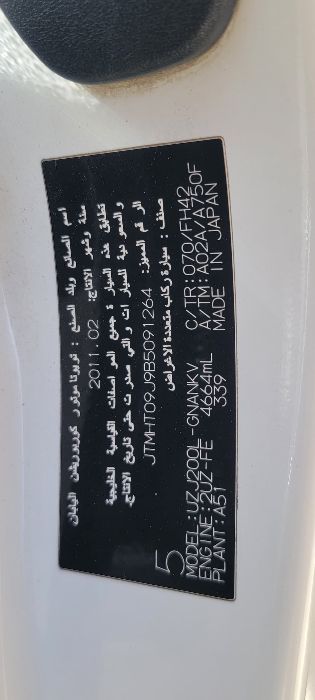 اسم الصانع وبلد الصنع : تويوتا موتور كوربوريشن اليابان
سنة وشهر الانتاج: 2011.02
تطابق هذه السيارة جميع المواصفات القياسية الخليجية
والسعودية للسيارات والتي صدرت حتى تاريخ الانتاج.
الرقم المميز: JTMHT09J9B5091264
صنف : سيارة ركاب متعددة الاغراض
5
MODEL:UZJ200L-GNANKV C/TR:070/FH42
ENGINE:2UZ-FE 4664mL A/TM:A02A/A750F
PLANT:A51 339 MADE IN JAPAN